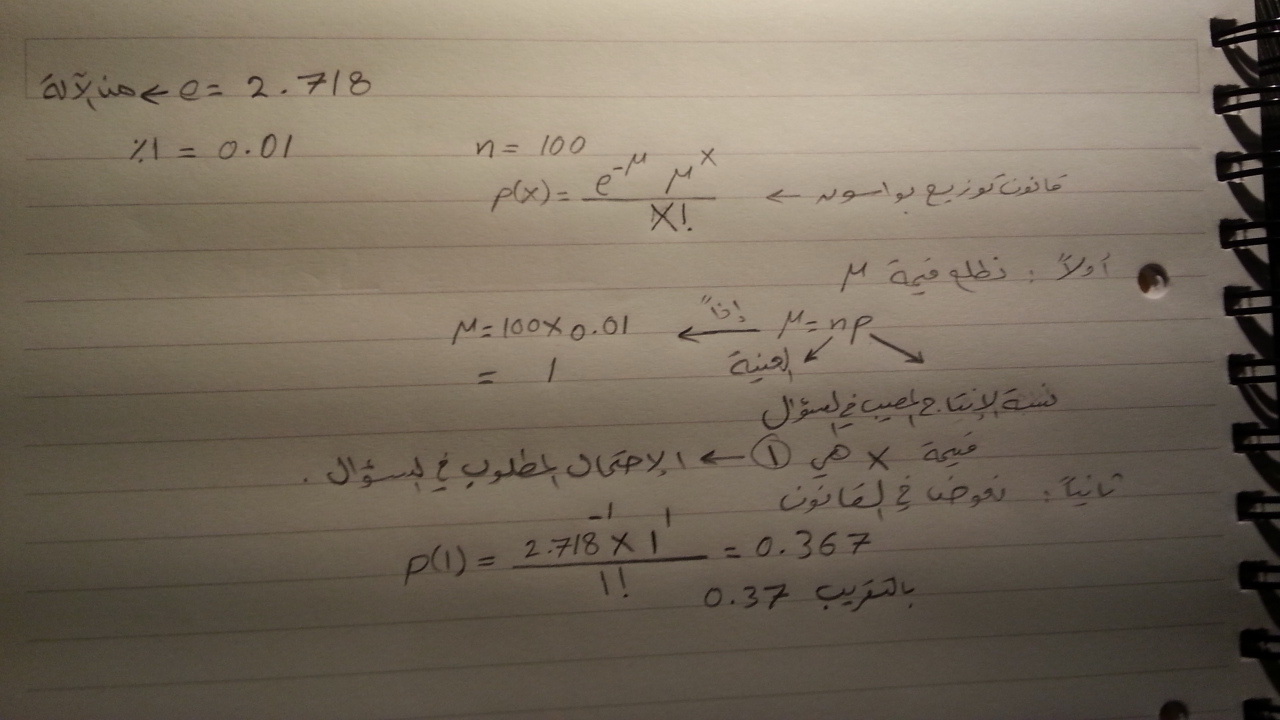 من الآلة ← e = 2.718
%1 = 0.01
n = 100
p(x) = e^-μ μ^x / x! ← قانون توزيع بواسون
أولاً : نطلع قيمة μ
μ = np إذاً ← μ = 100 × 0.01
= 1
العينة
نسبة الإنتاج المعيب في السؤال
قيمة x هي 1 ← الإحتمال المطلوب في السؤال .
ثانياً : نعوض في القانون
p(1) = 2.718^-1 × 1^1 / 1! = 0.367
بالتقريب 0.37